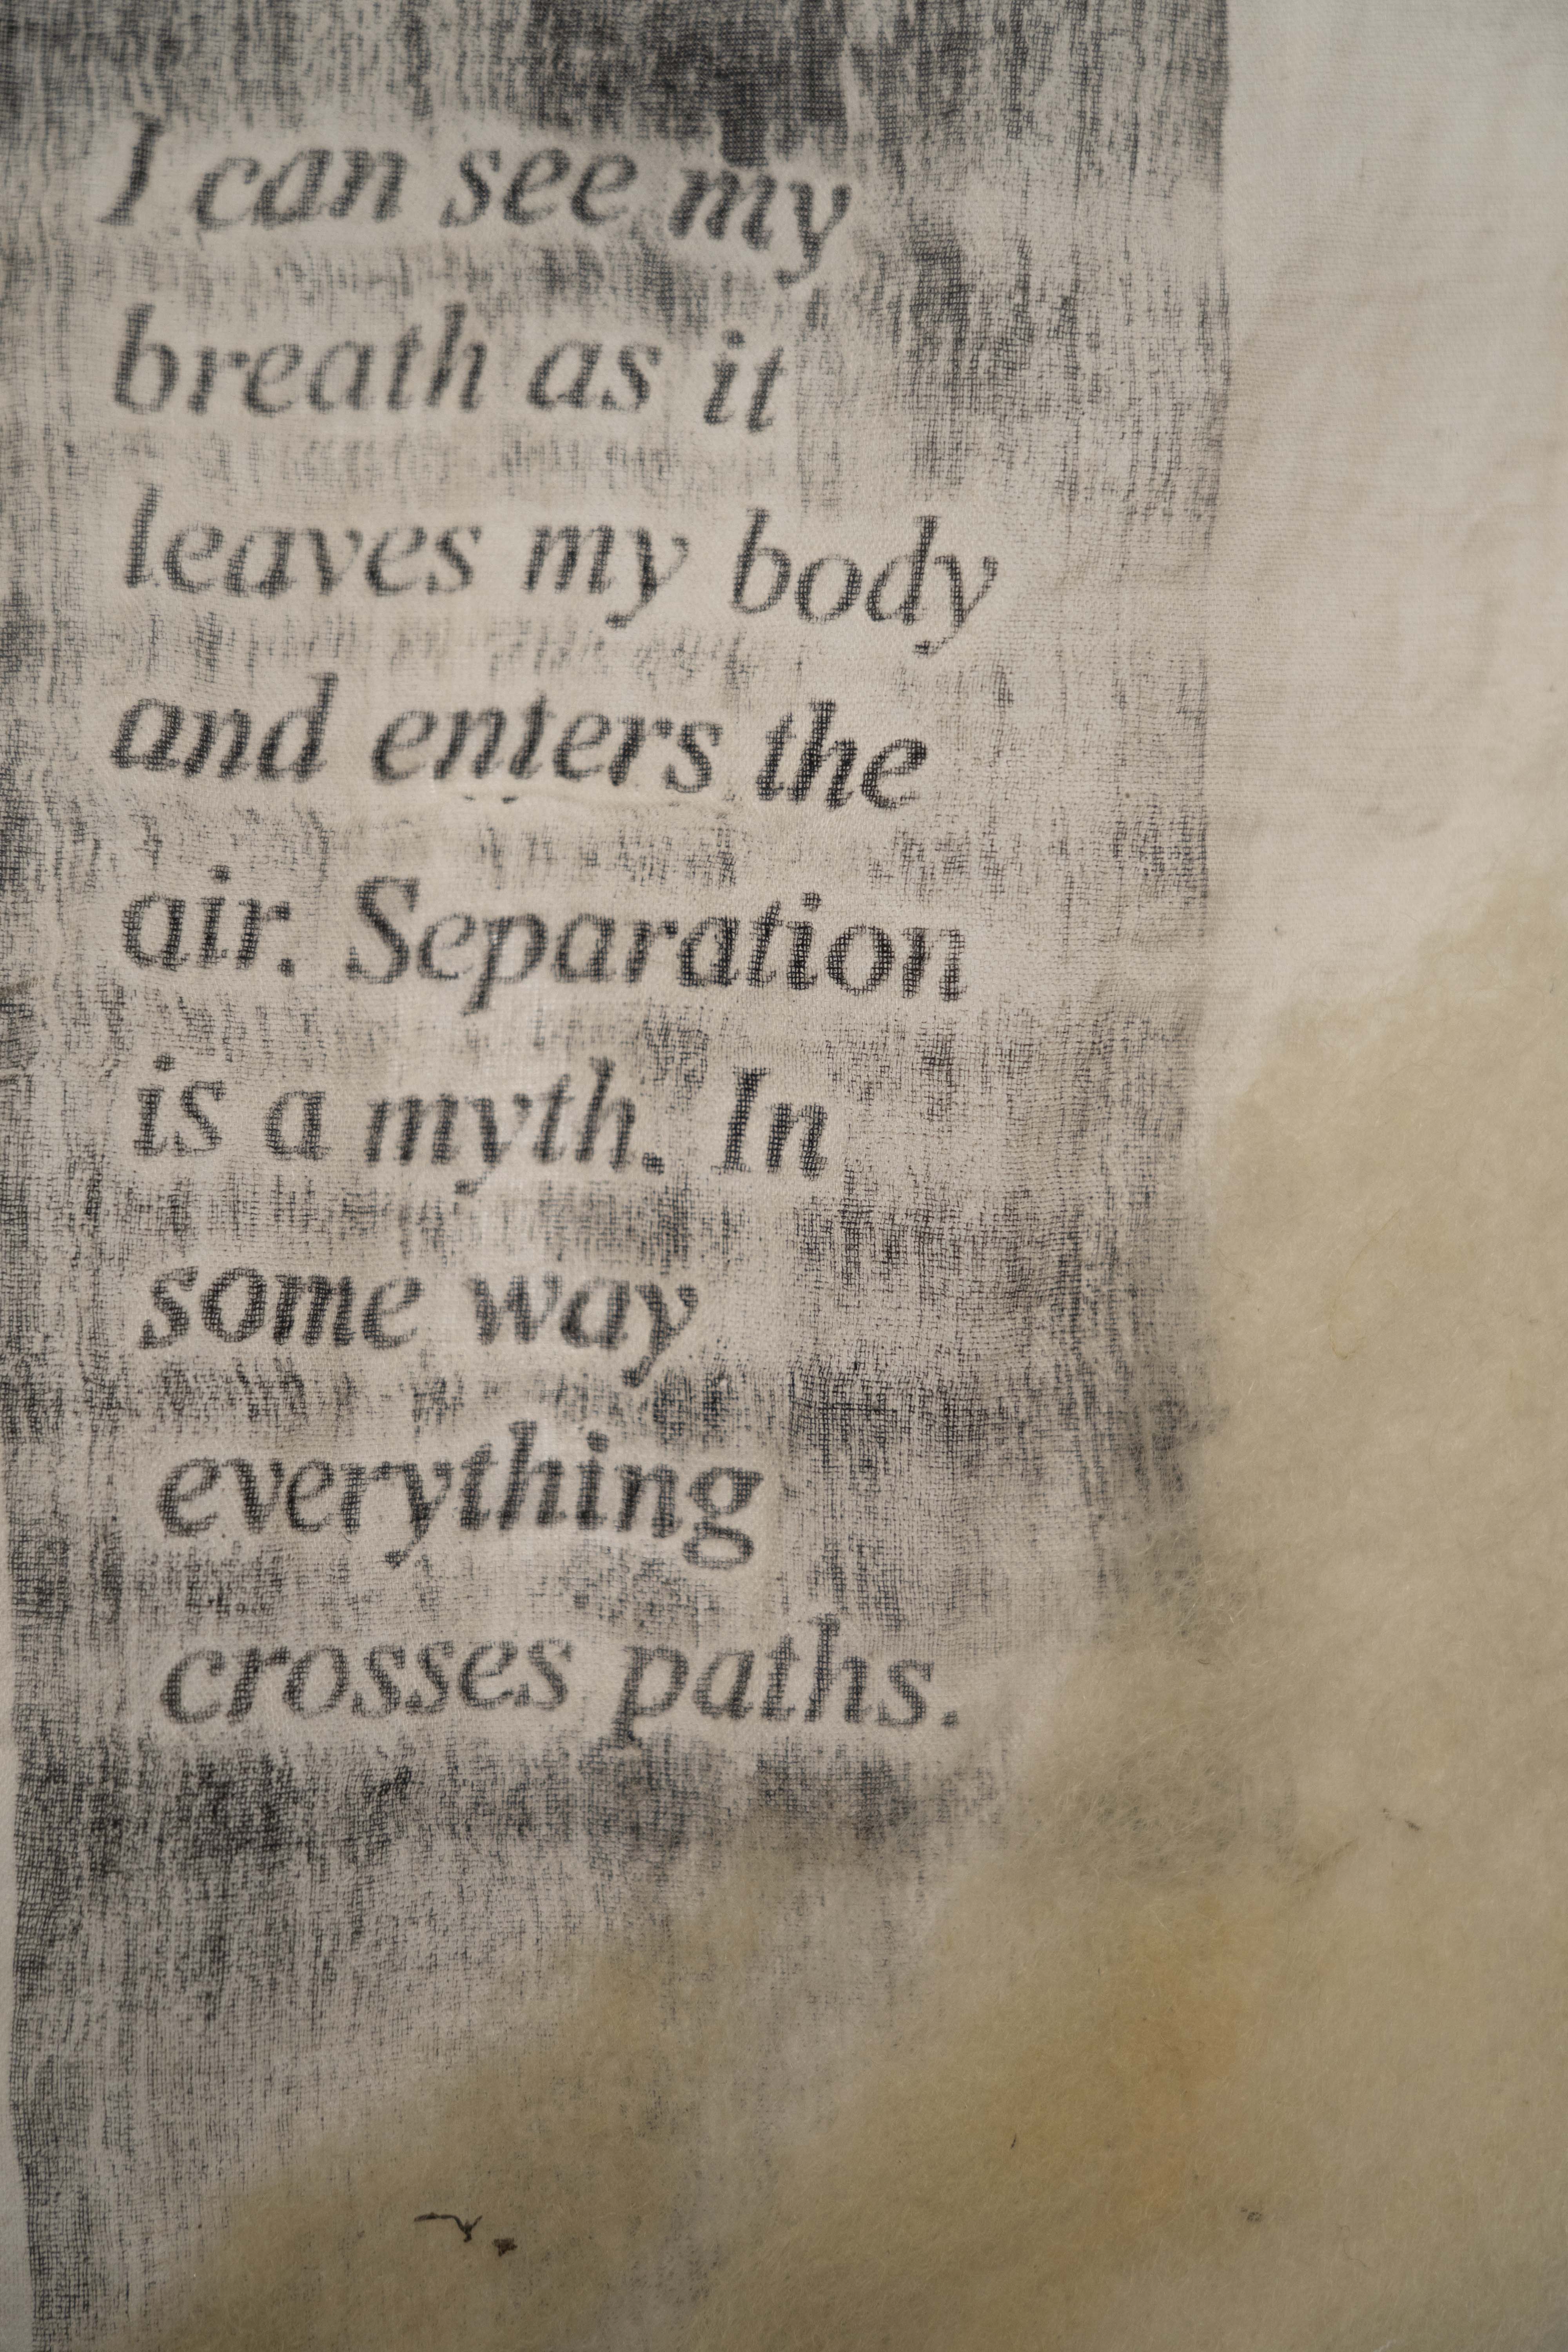 I can see my
breath as it
leaves my body
and enters the
air. Separation
is a myth. In
some way
everything
crosses paths.